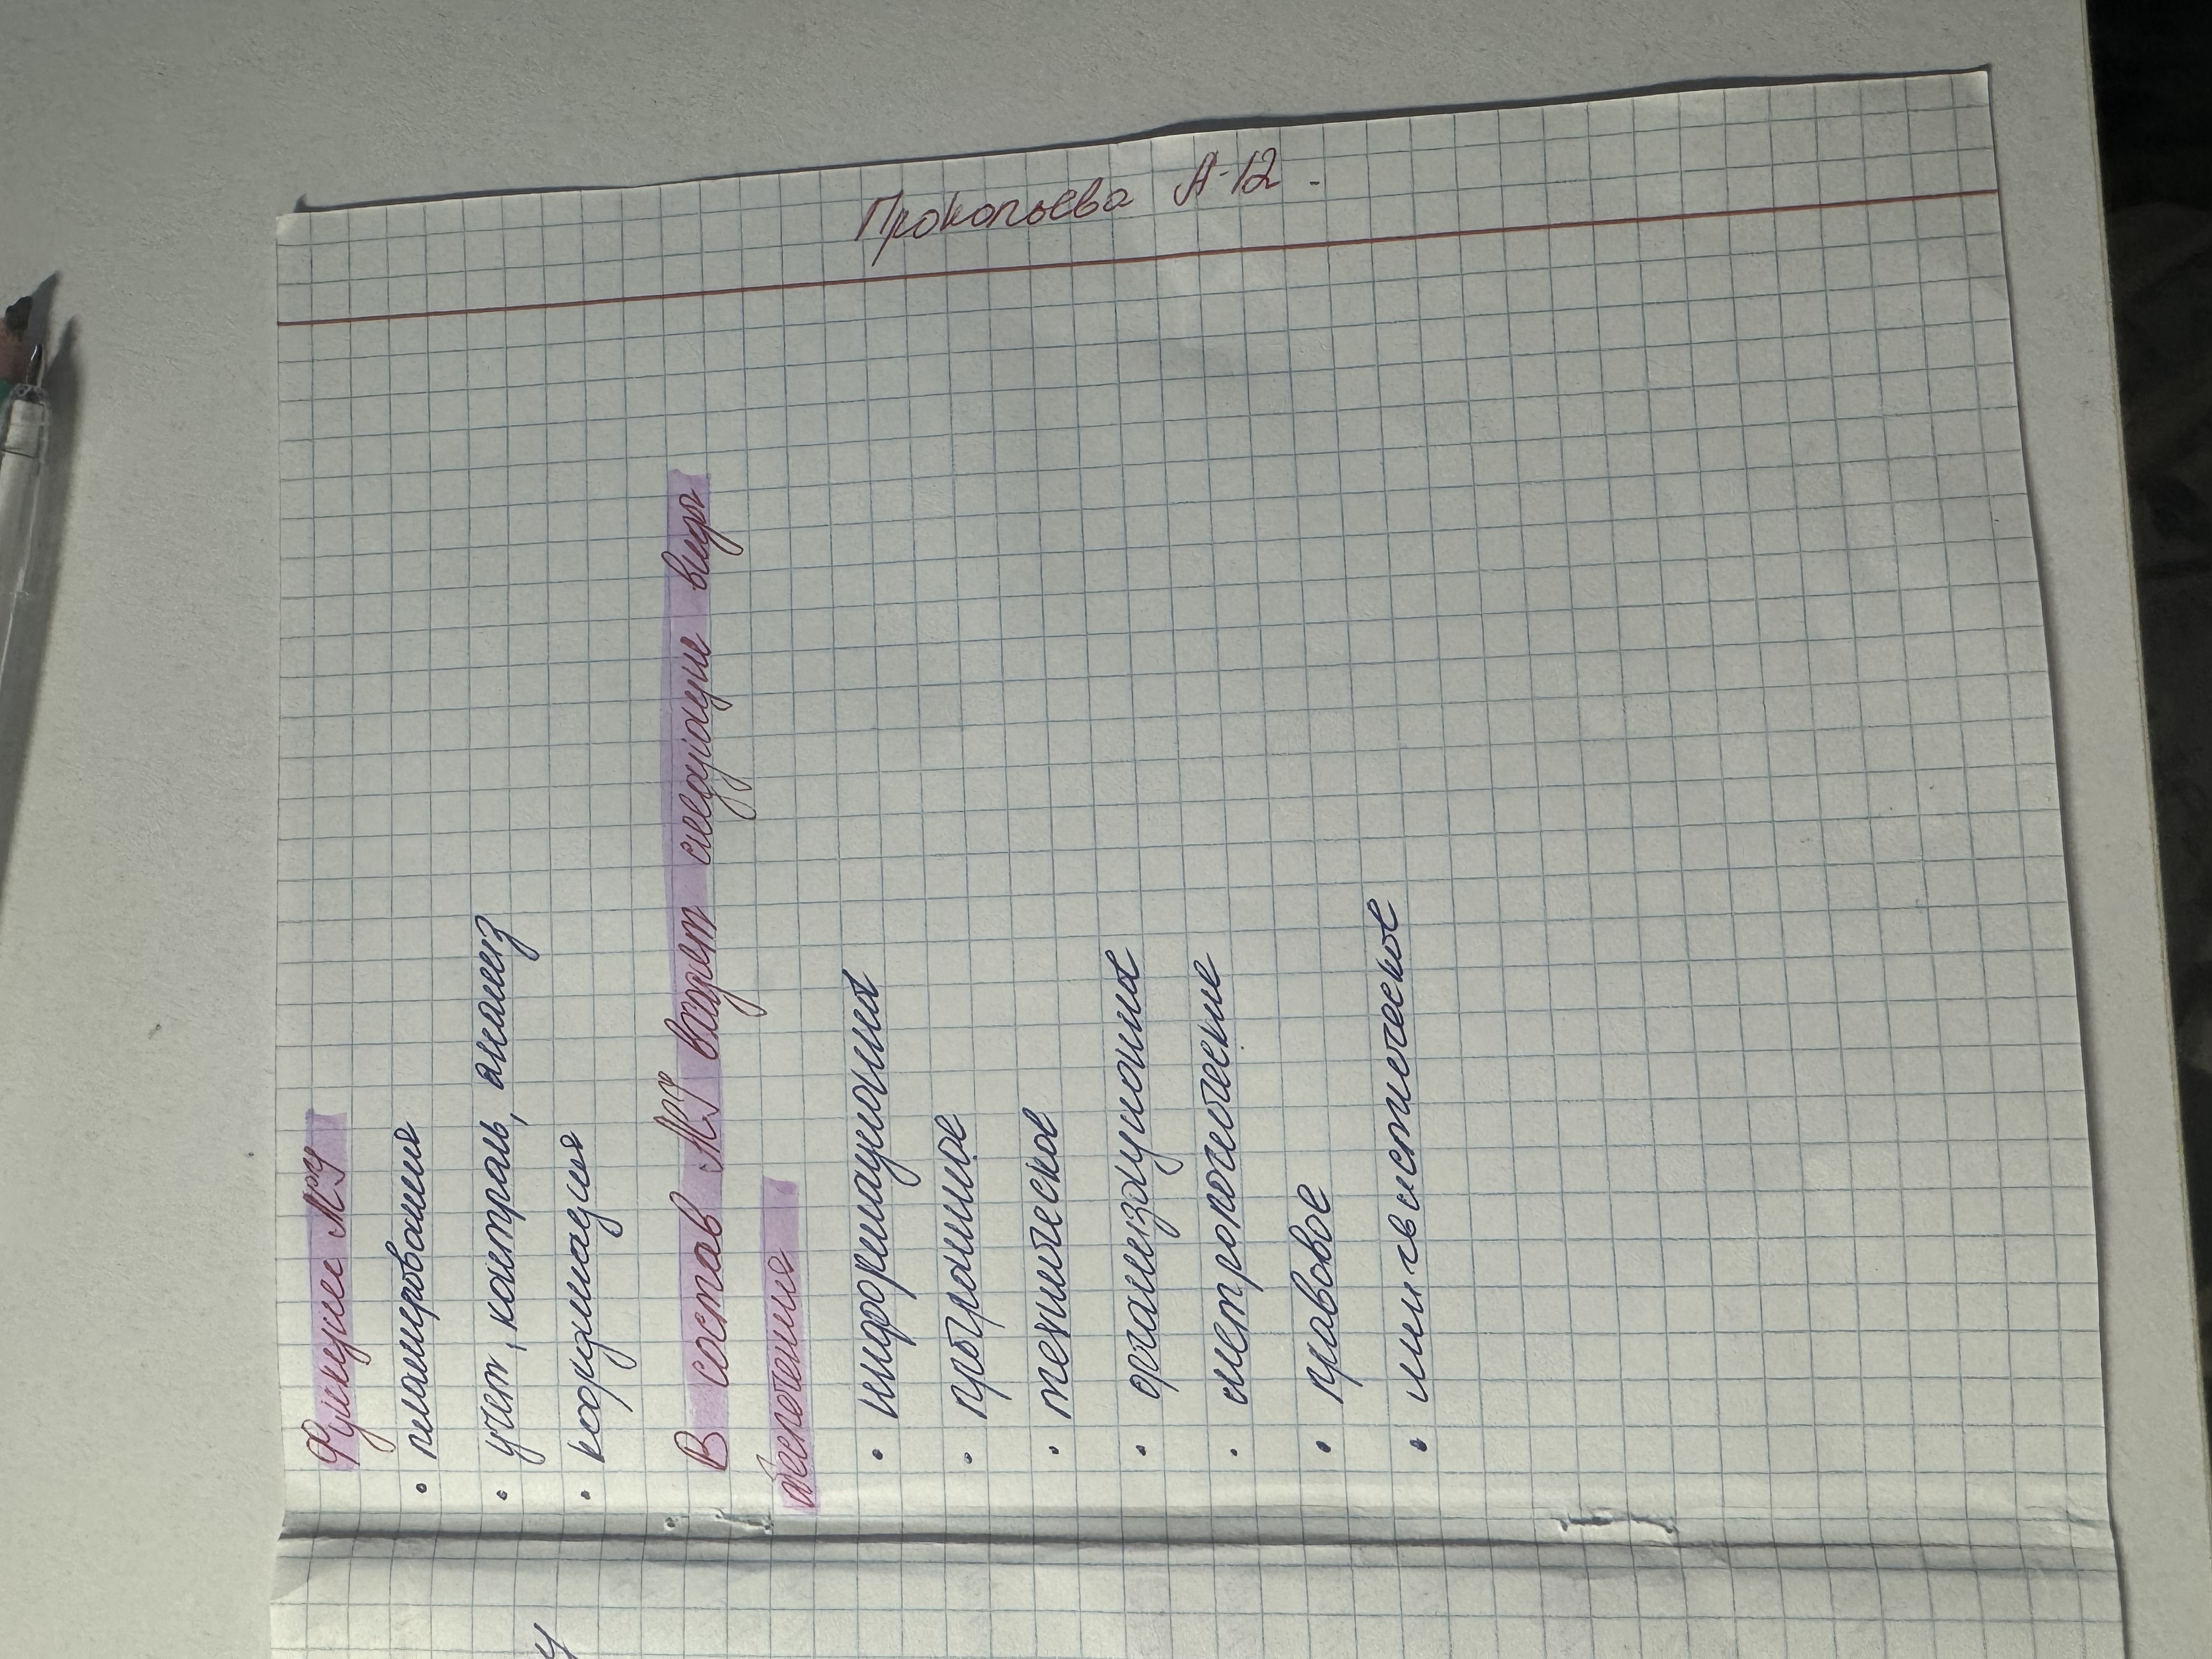 Прокопьева А-12.
Функции АРМ
• планирования
• учет, контроль, анализ
• координация
В состав АРМ входят следующие виды
обеспечения
• информационная
• программное
• техническое
• организационное
• метрологические
• правовое
• лингвистическое
у